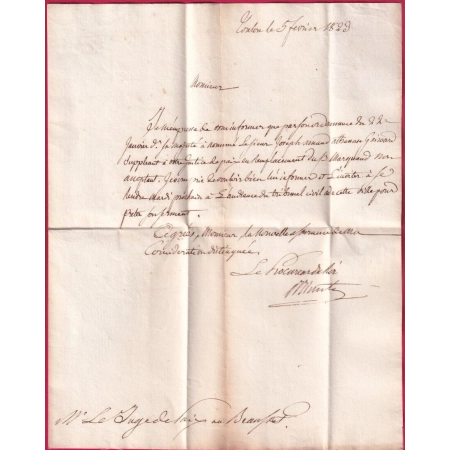 Toulon le 5 février 1823
Monsieur
Je m'empresse de vous informer que par son ordonnance du 22
janvier dr Sa Majesté a nommé le sieur Joseph
suppléant à votre justice de paix en remplacement du Sr non
acceptant. Je vous prie de vouloir bien l'en informer et l'inviter à se
rendre mardi prochain à l'audience du tribunal civil de cette ville pour
prêter son serment.
Agréez, Monsieur, la nouvelle assurance de ma
Considération distinguée,
Le Procureur du Roi
Mr Le Juge de Paix au Beausset